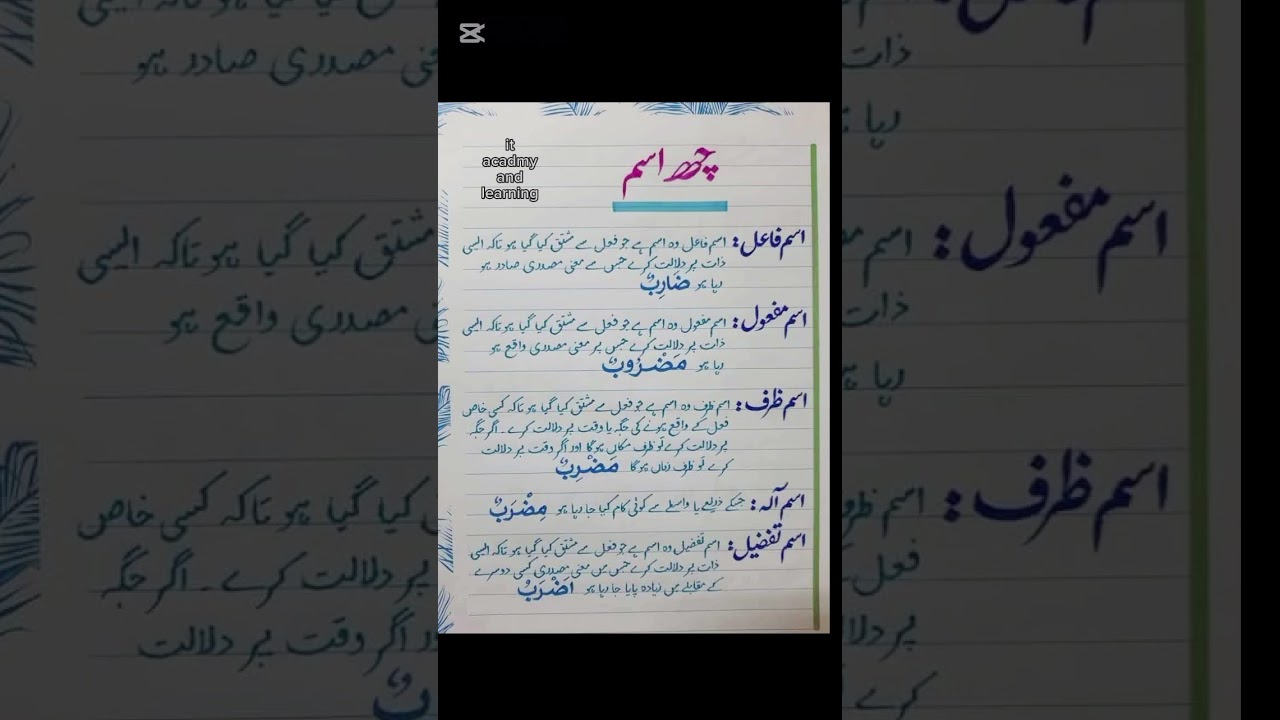 it
acadmy
and
learning
چھ اسم
اسم فاعل: اسم فاعل وہ اسم ہے جو فعل سے مشتق کیا گیا ہو تاکہ ایسی
ذات پر دلالت کرے جس سے معنی مصدری صادر ہو
رہا ہو ضَارِبٌ
اسم مفعول: اسم مفعول وہ اسم ہے جو فعل سے مشتق کیا گیا ہو تاکہ ایسی
ذات پر دلالت کرے جس پر معنی مصدری واقع ہو
رہا ہو مَضْرُوبٌ
اسم ظرف: اسم ظرف وہ اسم ہے جو فعل سے مشتق کیا گیا ہو تاکہ کسی خاص
فعل کے واقع ہونے کی جگہ یا وقت پر دلالت کرے۔ اگر جگہ
پر دلالت کرے تو ظرف مکاں ہوگا اور اگر وقت پر دلالت
کرے تو ظرف زماں ہوگا مَضْرِبٌ
اسم آلہ: جسکے ذریعے یا واسطے سے کوئی کام کیا جا رہا ہو مِضْرَبٌ
اسم تفضیل: اسم تفضیل وہ اسم ہے جو فعل سے مشتق کیا گیا ہو تاکہ ایسی
ذات پر دلالت کرے جس میں معنی مصدری کسی دوسرے
کے مقابلے میں زیادہ پایا جا رہا ہو اَضْرَبٌ